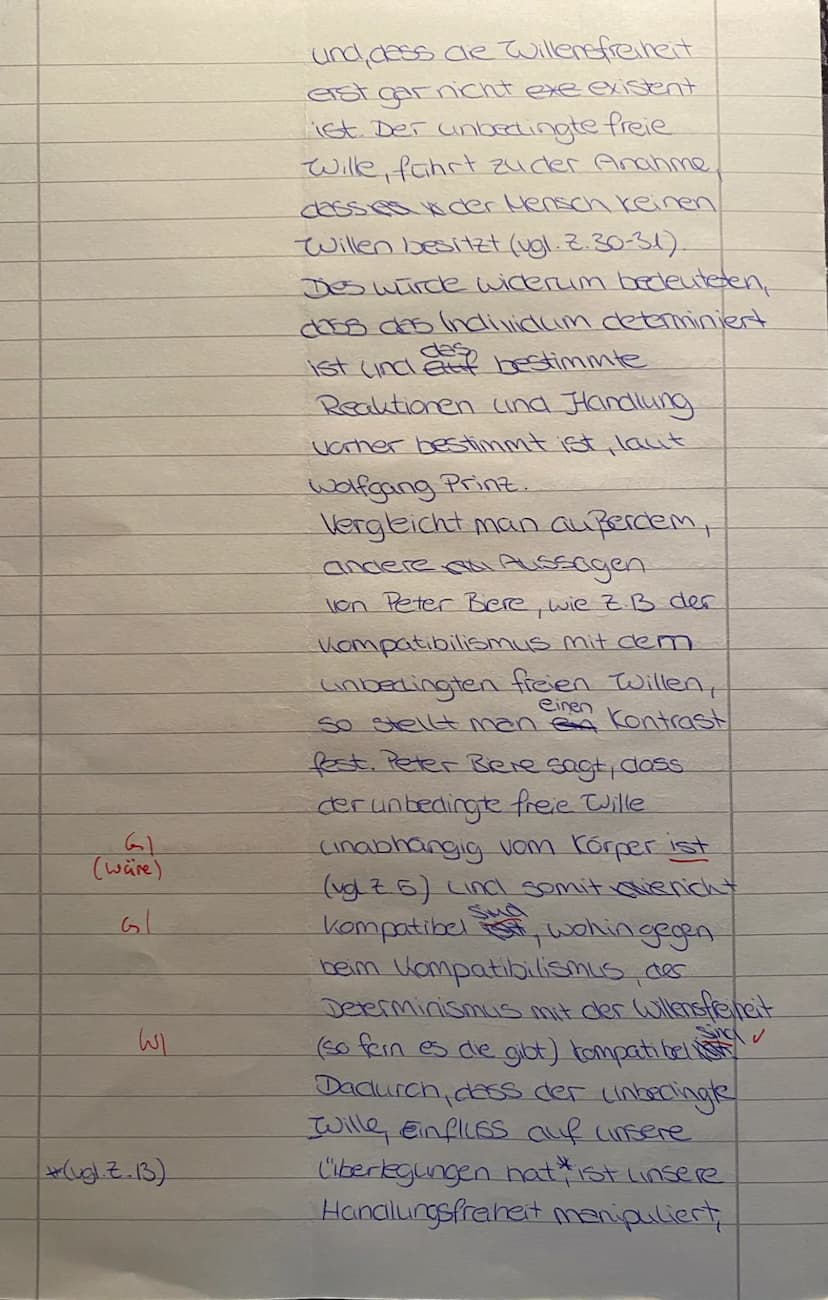 und, dass die Willensfreiheit
erst gar nicht exe existent
ist. Der unbedingte freie
Wille, führt zu der Anahme,
dass es der Mensch keinen
Willen besitzt (vgl. Z. 30-31).
Dies würde widerum bedeuteten,
dass das Individum determiniert
ist und auf das bestimmte
Reaktionen und Handlung
vorher bestimmt ist, laut
Wolfgang Prinz.
Vergleicht man außerdem,
andere au Aussagen
von Peter Biere, wie z.B der
Kompatibilismus mit dem
unbedingten freien Willen,
so stellt man ein einen Kontrast
fest. Peter Biere sagt, dass
der unbedingte freie Wille
G| (wäre) unabhängig vom Körper ist
(vgl. Z 5) und somit nicht
G| kompatibel ist sind, wohingegen
beim Kompatibilismus, der
Determinismus mit der Willensfreiheit
W| (so fern es die gibt) kompatibel ist sind ✓
Dadurch, dass der unbedingte
Wille, Einfluss auf unsere
*(vgl. Z. 13) Überlegungen hat*, ist unsere
Handlungsfreiheit manipuliert,